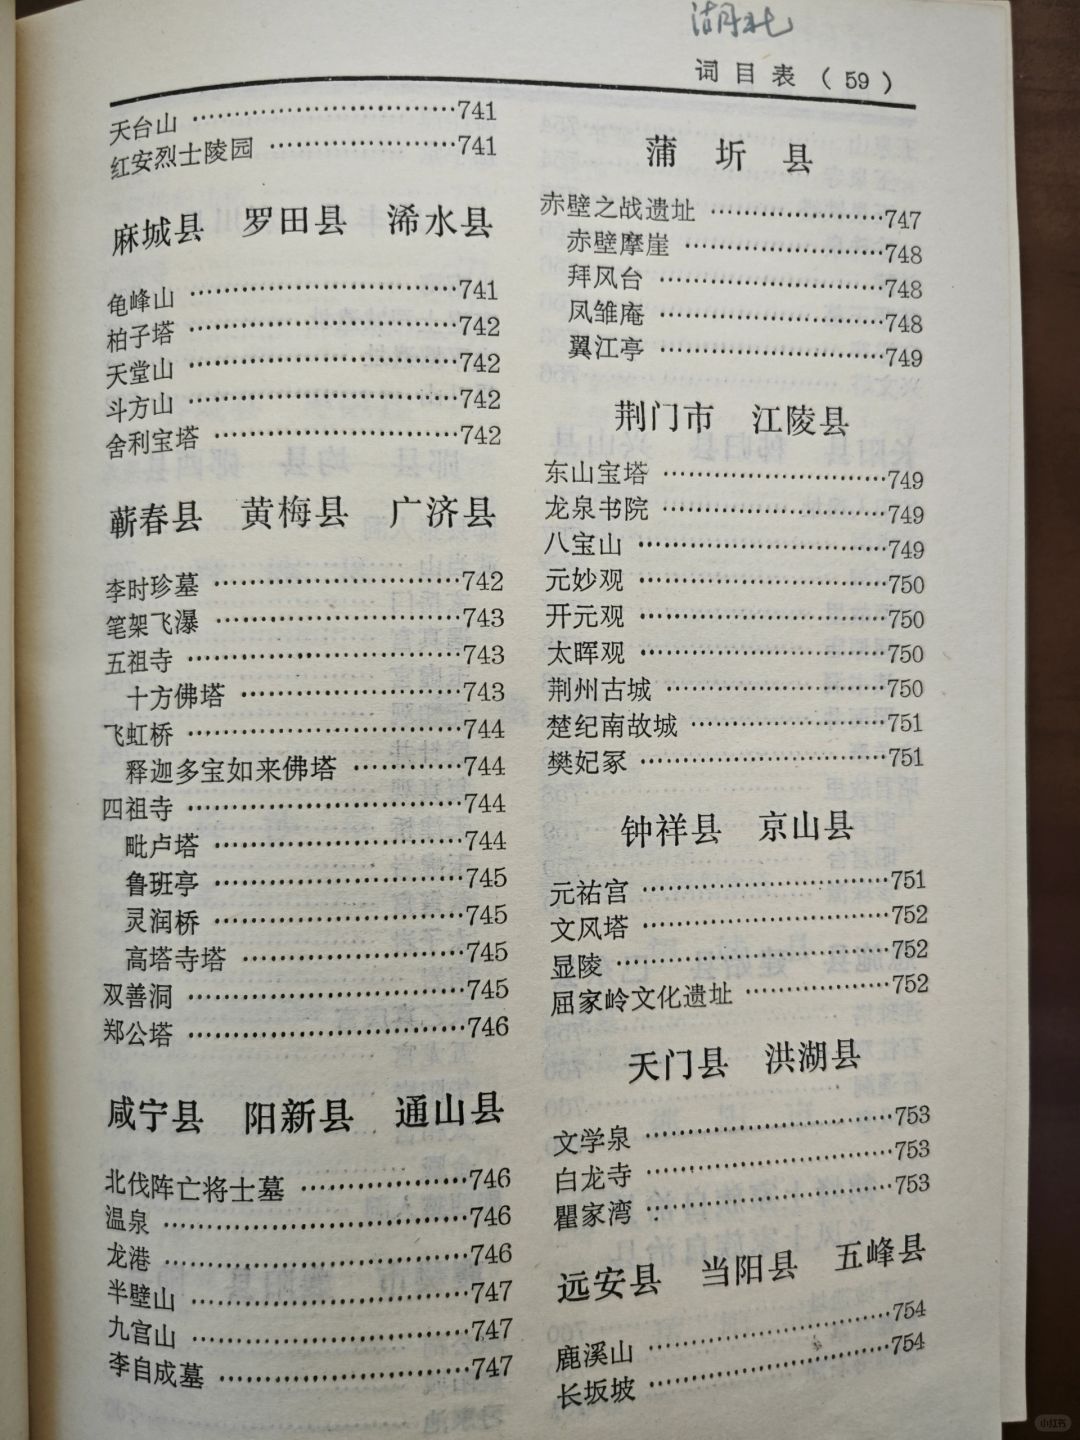 湖北
词目表（59）
天台山 …………………………741
红安烈士陵园 …………………741
麻城县 罗田县 浠水县
龟峰山 …………………………741
柏子塔 …………………………742
天堂山 …………………………742
斗方山 …………………………742
舍利宝塔 ………………………742
蕲春县 黄梅县 广济县
李时珍墓 ………………………742
笔架飞瀑 ………………………743
五祖寺 …………………………743
十方佛塔 ………………………743
飞虹桥 …………………………744
释迦多宝如来佛塔 ……………744
四祖寺 …………………………744
毗卢塔 …………………………744
鲁班亭 …………………………745
灵润桥 …………………………745
高塔寺塔 ………………………745
双善洞 …………………………745
郑公塔 …………………………746
咸宁县 阳新县 通山县
北伐阵亡将士墓 ………………746
温泉 ……………………………746
龙港 ……………………………746
半壁山 …………………………747
九宫山 …………………………747
李自成墓 ………………………747
蒲圻县
赤壁之战遗址 …………………747
赤壁摩崖 ………………………748
拜风台 …………………………748
凤雏庵 …………………………748
翼江亭 …………………………749
荆门市 江陵县
东山宝塔 ………………………749
龙泉书院 ………………………749
八宝山 …………………………749
元妙观 …………………………750
开元观 …………………………750
太晖观 …………………………750
荆州古城 ………………………750
楚纪南故城 ……………………751
樊妃冢 …………………………751
钟祥县 京山县
元祐宫 …………………………751
文风塔 …………………………752
显陵 ……………………………752
屈家岭文化遗址 ………………752
天门县 洪湖县
文学泉 …………………………753
白龙寺 …………………………753
瞿家湾 …………………………753
远安县 当阳县 五峰县
鹿溪山 …………………………754
长坂坡 …………………………754
小红书